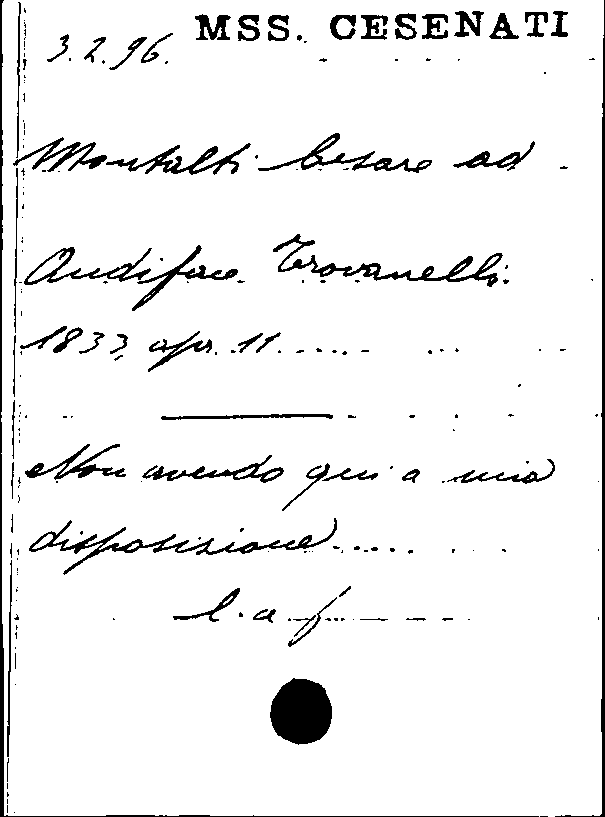 3.2.96. MSS. CESENATI
Montalti Cesare ad
Audiface Trovanelli.
1833, apr. 11......
Non avendo qui a mia
disposizione.....
l. a. f.